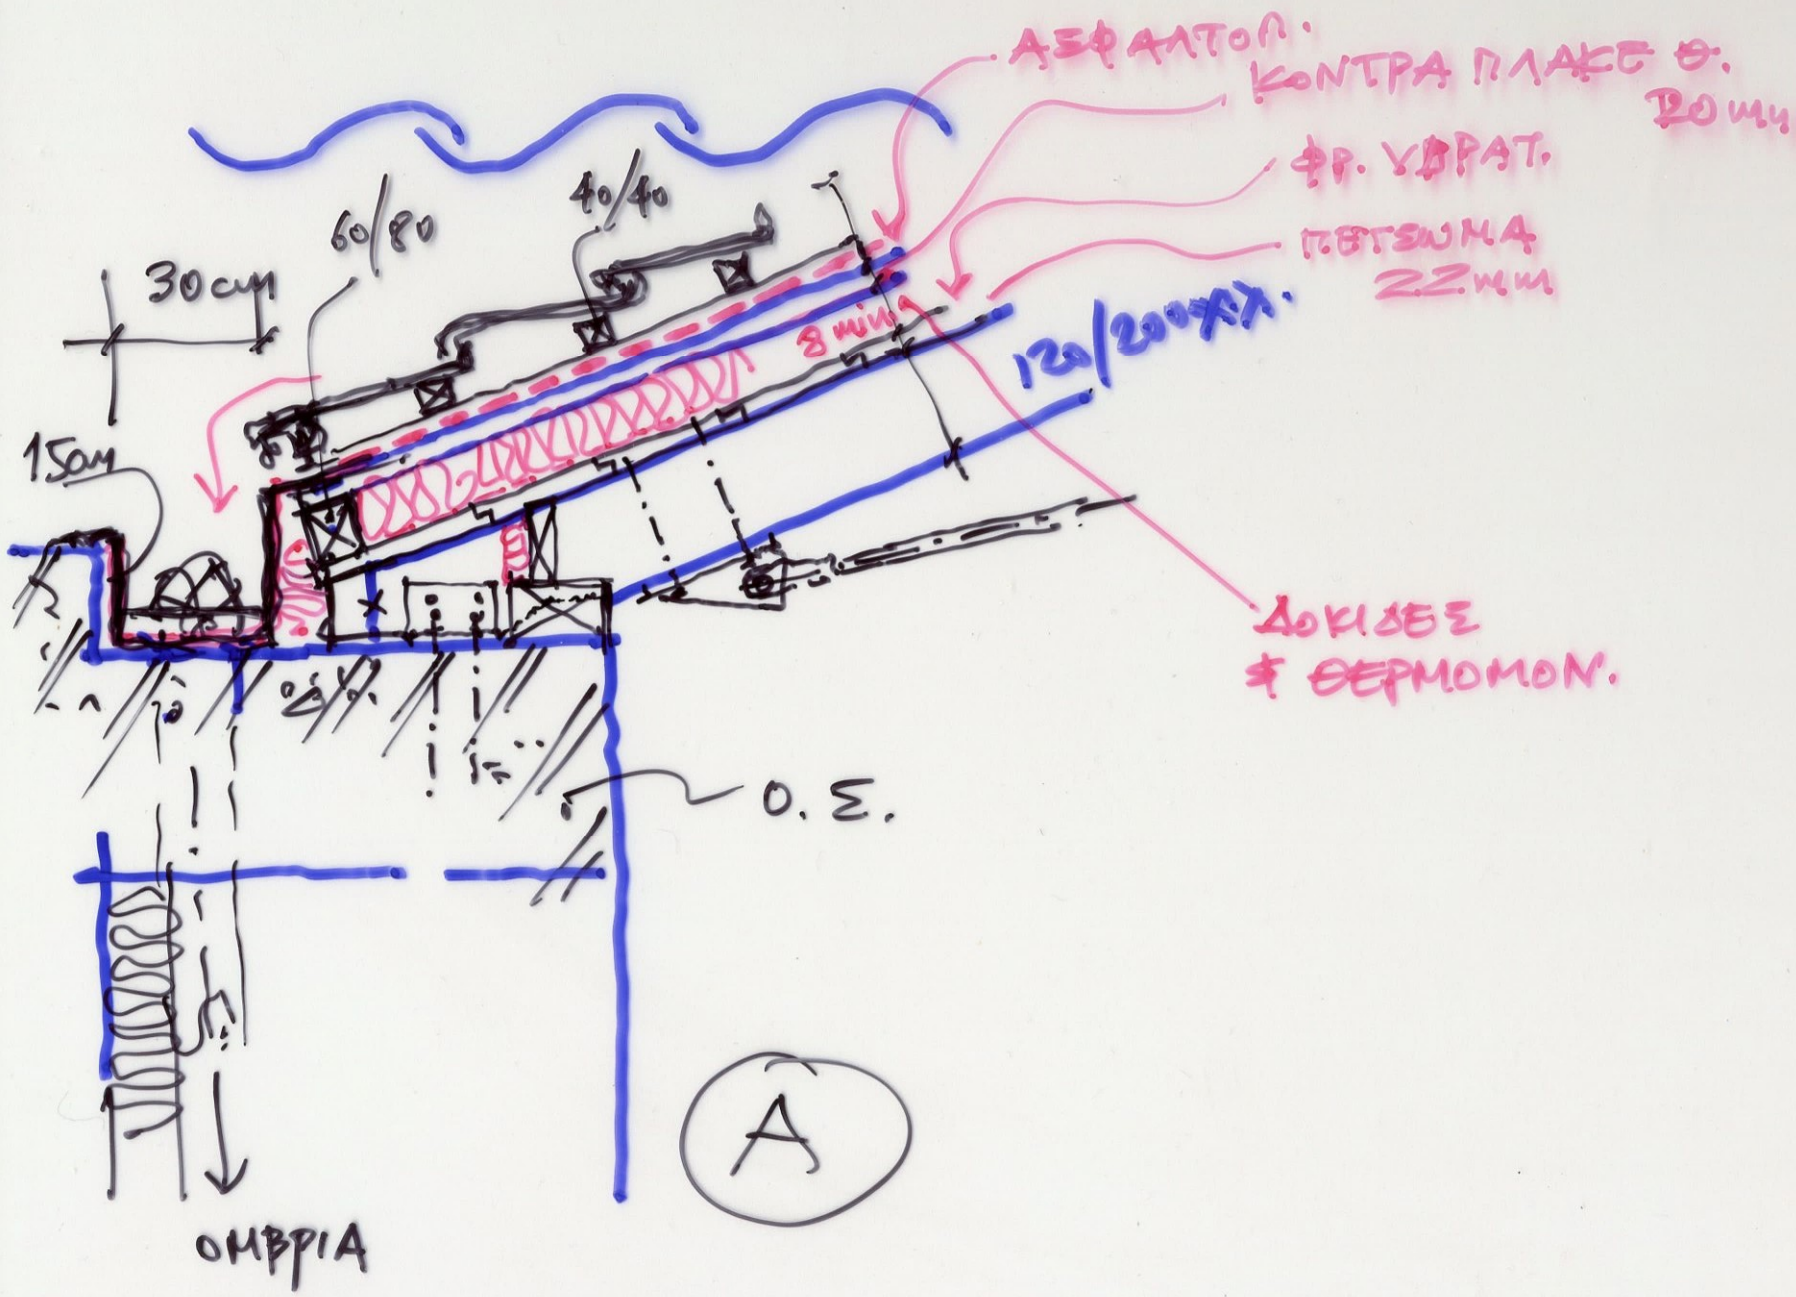 ΑΣΦΑΛΤΟΠ.
ΚΟΝΤΡΑ ΠΛΑΚΕ Θ.
20mm
ΦΡ. ΥΔΡΑΤ.
ΠΕΤΣΩΜΑ
22mm
40/40
60/80
30cm
8 min
120/200χχ.
15cm
ΔΟΚΙΔΕΣ
& ΘΕΡΜΟΜΟΝ.
Ο.Σ.
Α
ΟΜΒΡΙΑ